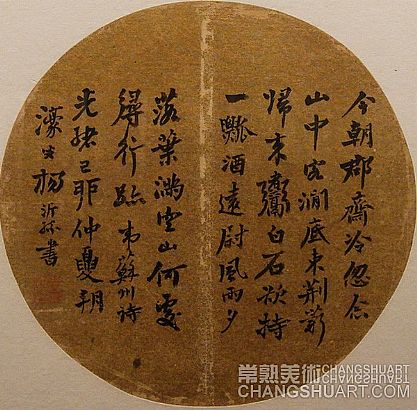 今朝郡齋冷忽念
山中客澗底束荆薪
歸來白石欲持
一瓢酒遠尉風雨夕
落葉滿空山何處
尋行跡 韋蘇州詩
光緒己卯仲夏朔
濠叟楊沂孫書
常熟美術CHANGSHUART
CHANGSHUART.COM